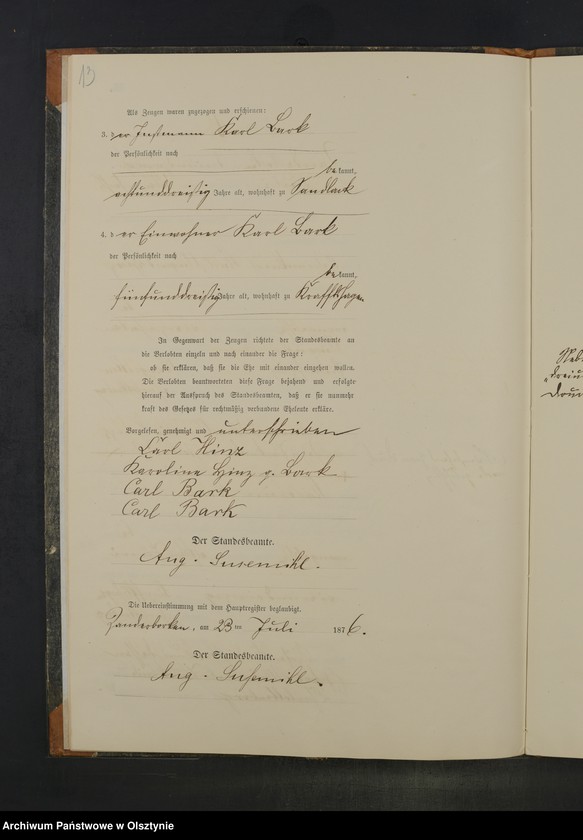 13
Als Zeugen waren zugezogen und erschienen:
3. der Instmann Karl Bark
der Persönlichkeit nach
bekannt,
achtunddreißig Jahre alt, wohnhaft zu Sandlack
4. der Einwohner Karl Bark
der Persönlichkeit nach
bekannt,
fünfunddreißig Jahre alt, wohnhaft zu Kraftshagen
In Gegenwart der Zeugen richtete der Standesbeamte an
die Verlobten einzeln und nach einander die Frage:
ob sie erklären, daß sie die Ehe mit einander eingehen wollen.
Die Verlobten beantworteten diese Frage bejahend und erfolgte
hierauf der Ausspruch des Standesbeamten, daß er sie nunmehr
kraft des Gesetzes für rechtmäßig verbundene Eheleute erkläre.
Vorgelesen, genehmigt und unterschrieben
Carl Hinz
Karoline Hinz g. Bark
Carl Bark
Carl Bark
Der Standesbeamte.
Aug. Susemihl.
Die Uebereinstimmung mit dem Hauptregister beglaubigt.
am 23 ten Juli 1876.
Der Standesbeamte.
Aug. Susemihl.
Archiwum Państwowe w Olsztynie